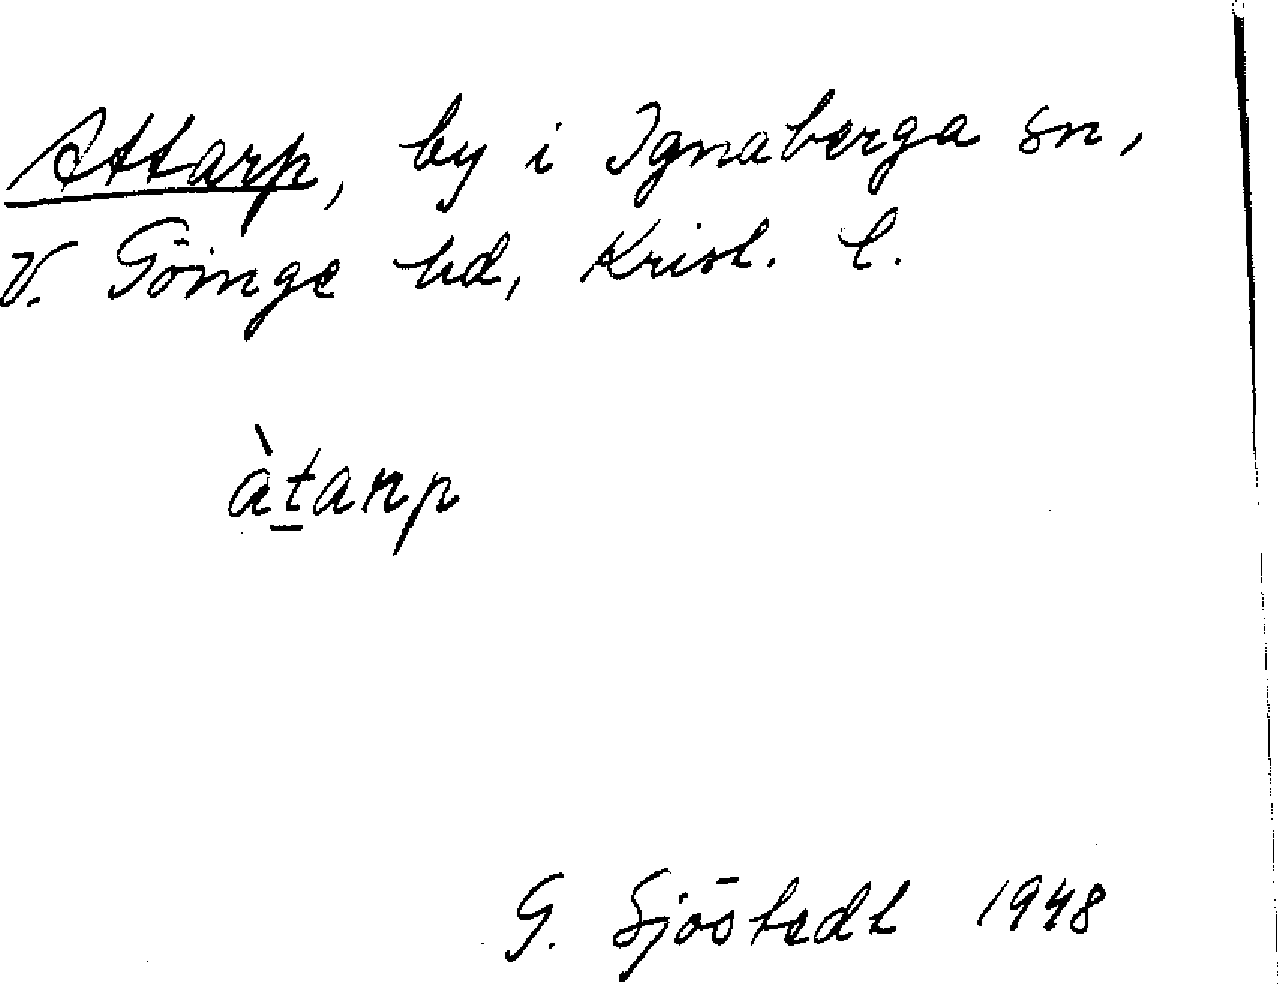 Attarp, by i Ignaberga sn,
V. Göinge hd, Krist. l.
àt̲arp
G. Sjöstedt 1948